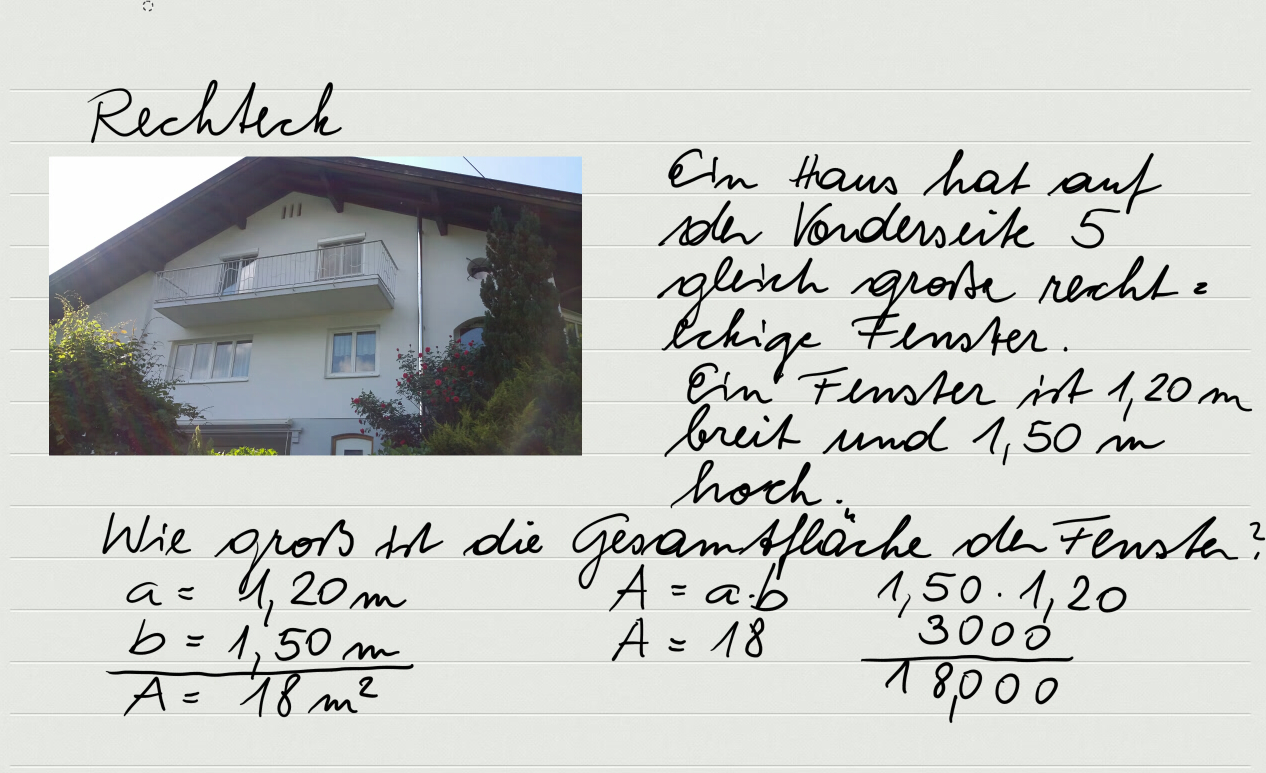 Rechteck
Ein Haus hat auf
der Vorderseite 5
gleich große recht=
eckige Fenster.
Ein Fenster ist 1,20 m
breit und 1,50 m
hoch.
Wie groß ist die Gesamtfläche der Fenster?
a = 1,20 m
b = 1,50 m
A = 18 m²
A = a·b
A = 18
1,50 · 1,20
3000
18,000